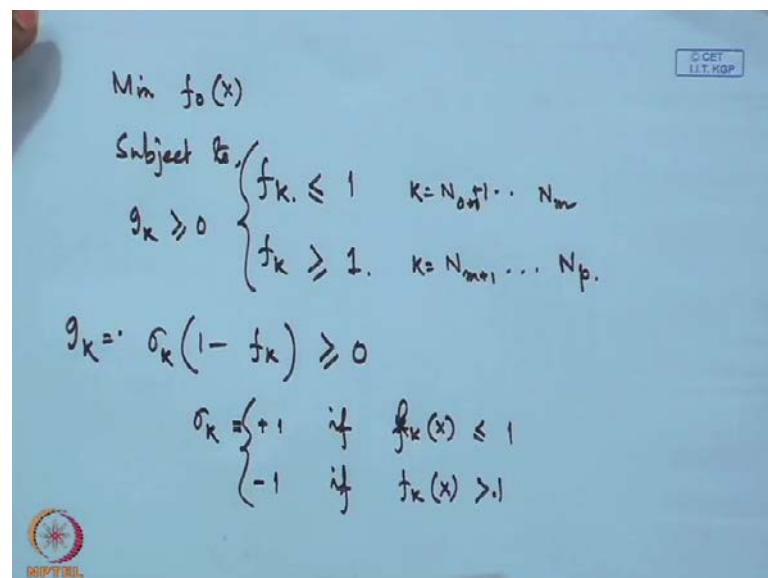 © CET
I.I.T. KGP
Min f₀(x)
Subject to,
f_K ≤ 1 K = N₀+1 ·· N_m
g_K ≥ 0
f_K ≥ 1. K = N_{m+1} ... N_p.
g_K = σ_K (1 - f_K) ≥ 0
σ_K = { +1 if f_K(x) ≤ 1
-1 if f_K(x) ≥ 1
NPTEL